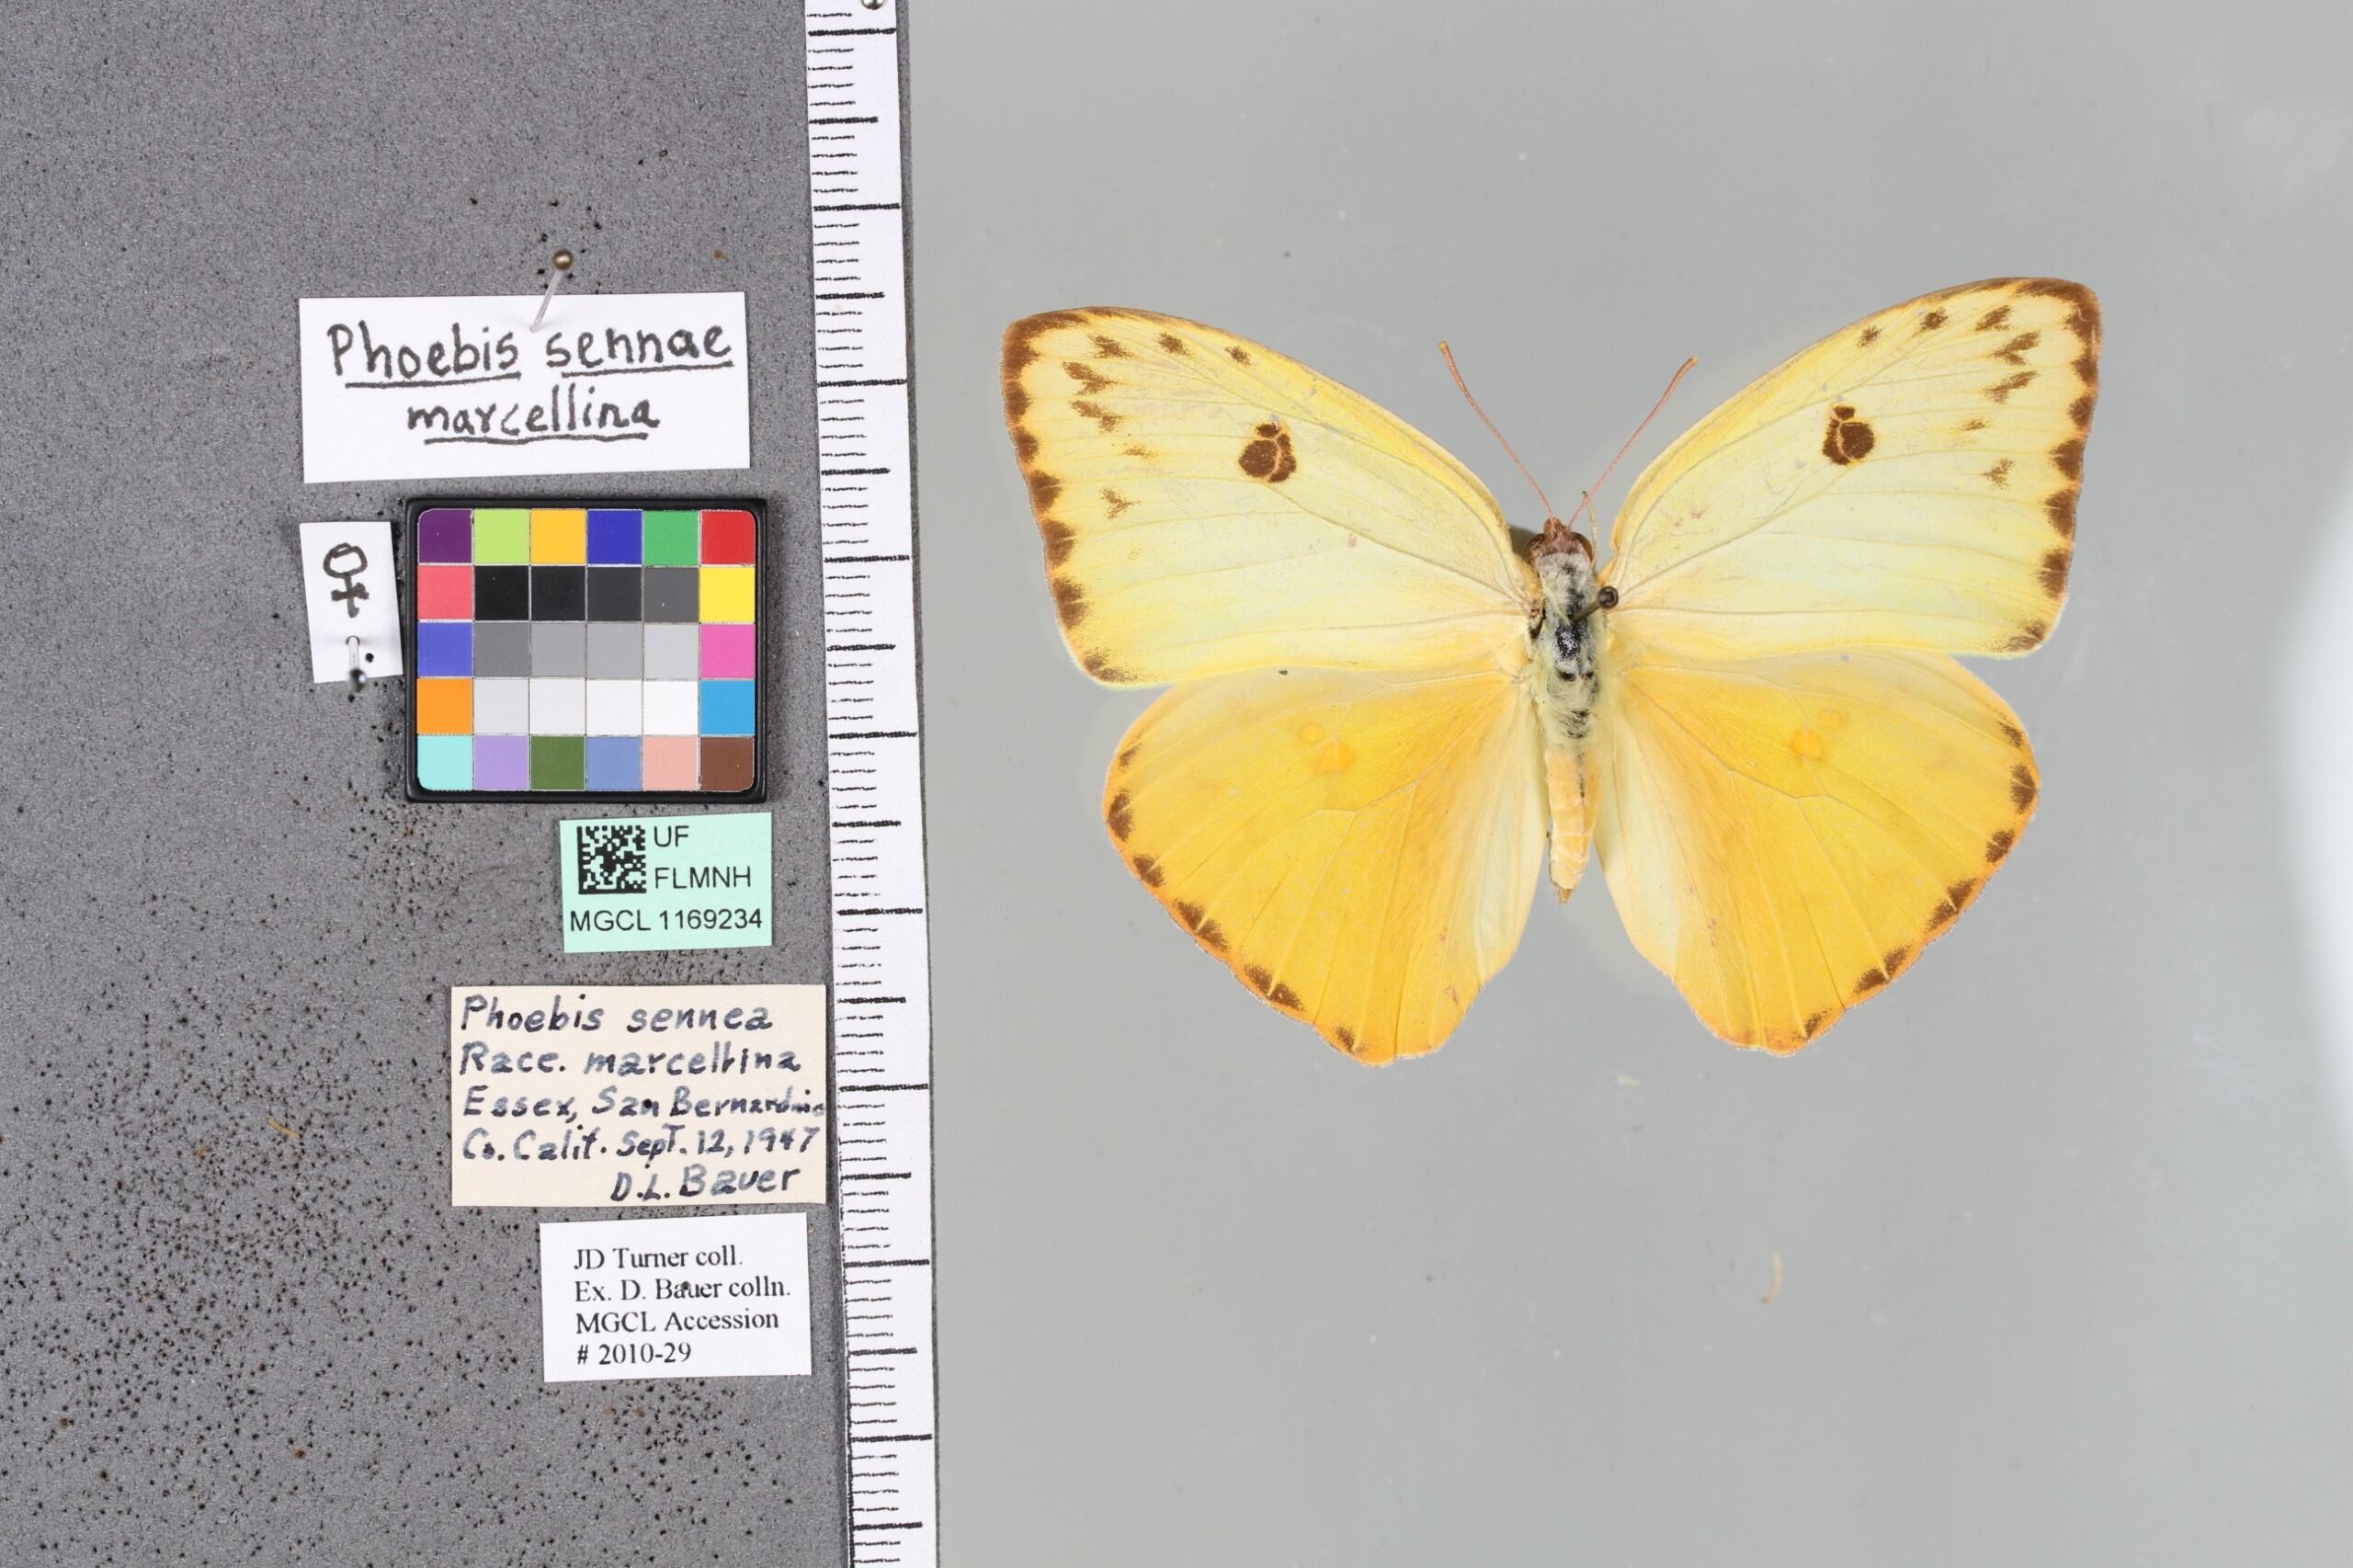 Phoebis sennae
marcellina
♀
UF
FLMNH
MGCL 1169234
Phoebis sennea
Race. marcellina
Essex, San Bernardino
Co. Calif. Sept. 12, 1947
D.L. Bauer
JD Turner coll.
Ex. D. Bauer colln.
MGCL Accession
# 2010-29